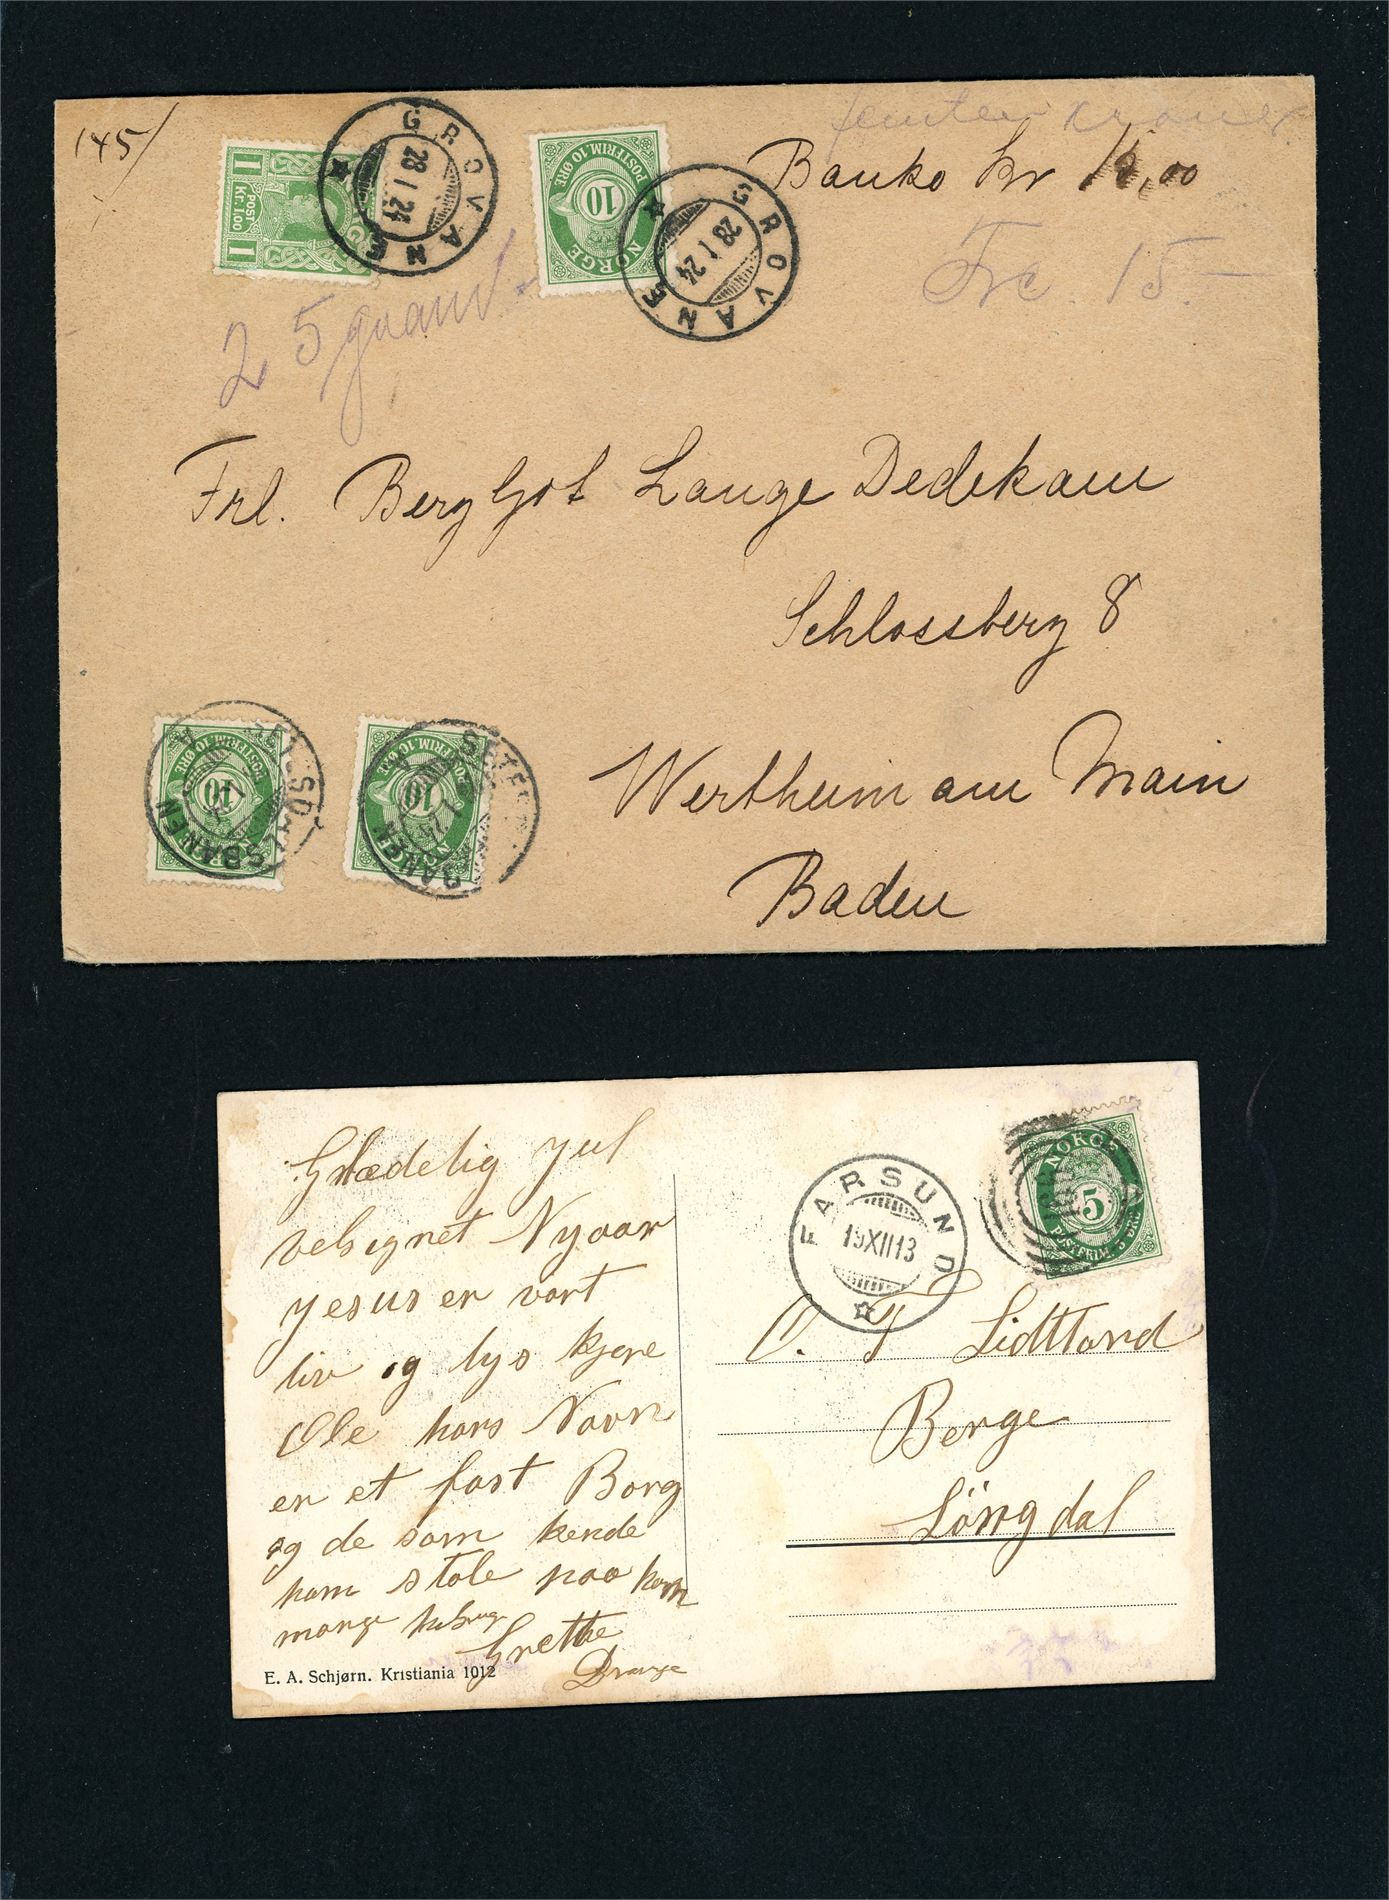 145/
femten kroner
Banko Kr 15,00
Frc. 15.-
1 POST Kr. 1.00 1
GROVANE
28 I 24
POSTFRIM. 10 ØRE
10
NORGE
GROVANE
28 I 24
25 gram
Frl. Bergljot Lange Dedekam
Schlossberg 8
Wertheim am Main
Baden
POSTFRIM. 10 ØRE
10
NORGE
SBANEN
A
POSTFRIM. 10 ØRE
10
NORGE
BANEN
Glædelig Jul
velsignet Nyaar
Jesus er vort
liv og lys kjere
Ole hans Navn
er et fast Borg
og de som kende
ham stole paa ham
mange
Grethe
Drange
E. A. Schjørn. Kristiania 1012
FARSUND
19 XII 13
NORGE
5
POSTFRIM. 5 ØRE
O. T Lidtland
Berge
Löngdal